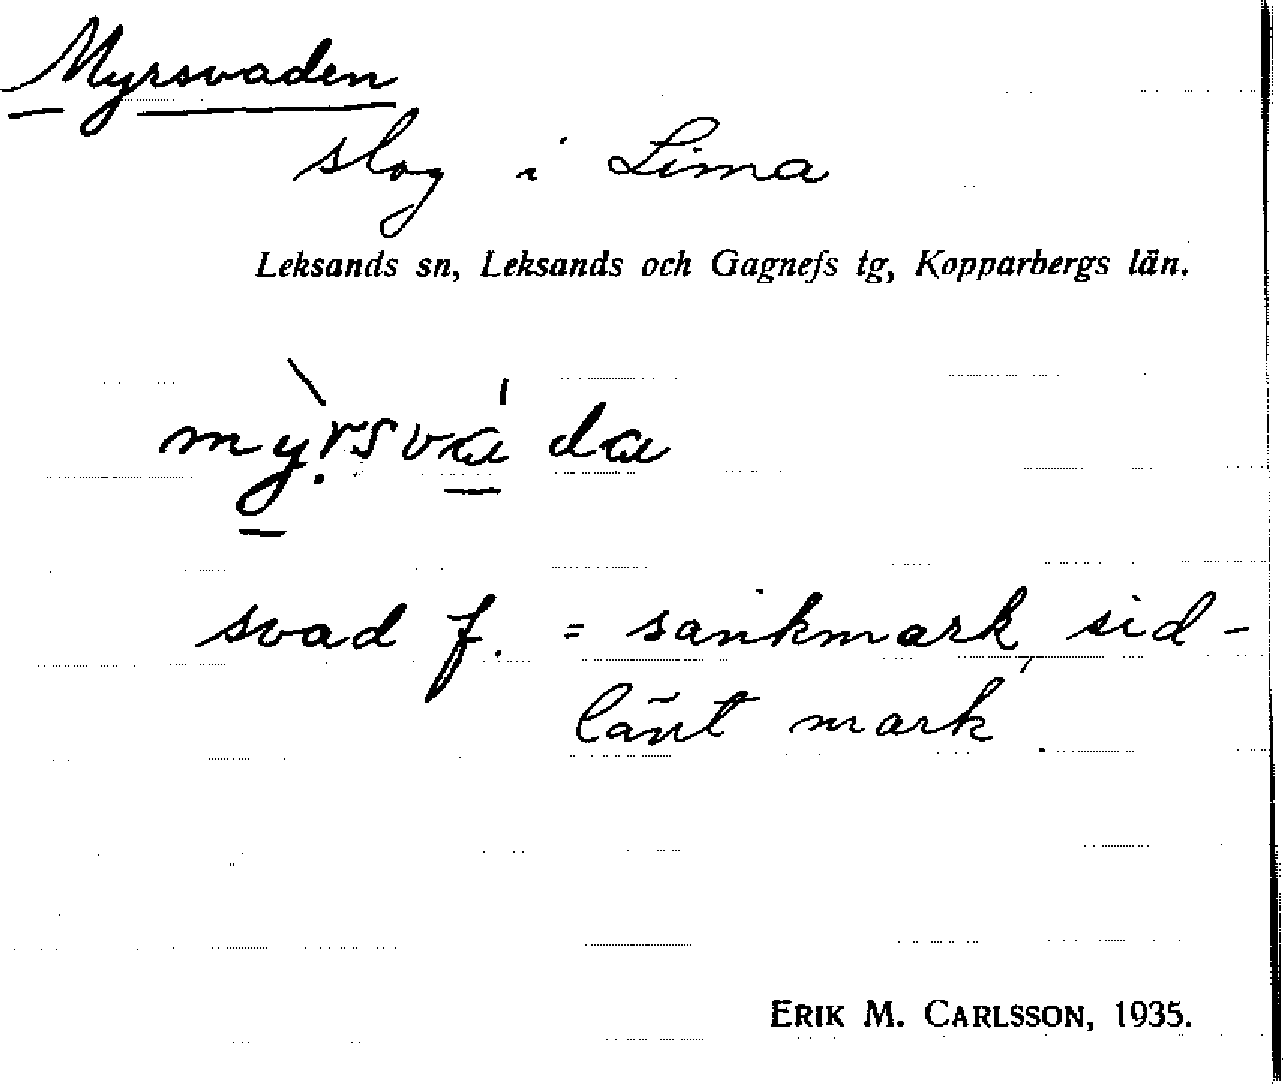 Myrsvaden
slog i Lima
Leksands sn, Leksands och Gagnefs tg, Kopparbergs län.
mỳṛsvá da
svad f. = sankmark, sid-
länt mark.
ERIK M. CARLSSON, 1935.